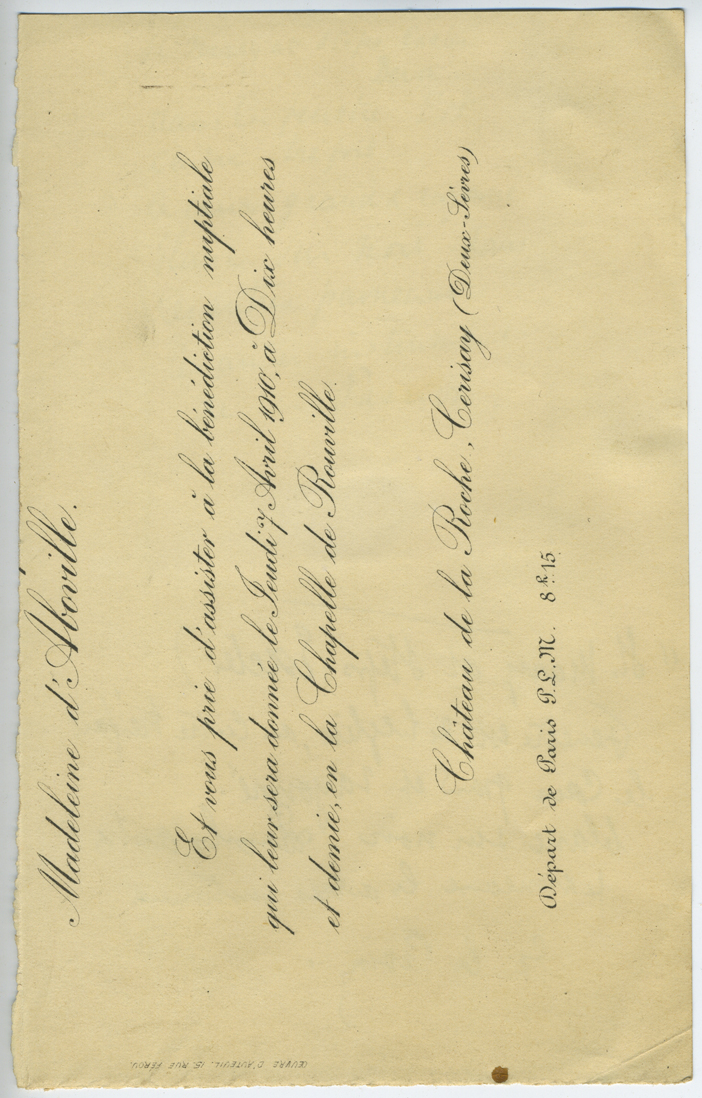 Madeleine d'Aboville.
Et vous prie d'assister à la bénédiction nuptiale
qui leur sera donnée le Jeudi 7 Avril 1910, à Dix heures
et demie, en la Chapelle de Rouville.
Château de la Roche, Cerisay (Deux-Sèvres)
Départ de Paris P.L.M. 8h15
ŒUVRE D'AUTEUIL, 15, RUE FÉROU.